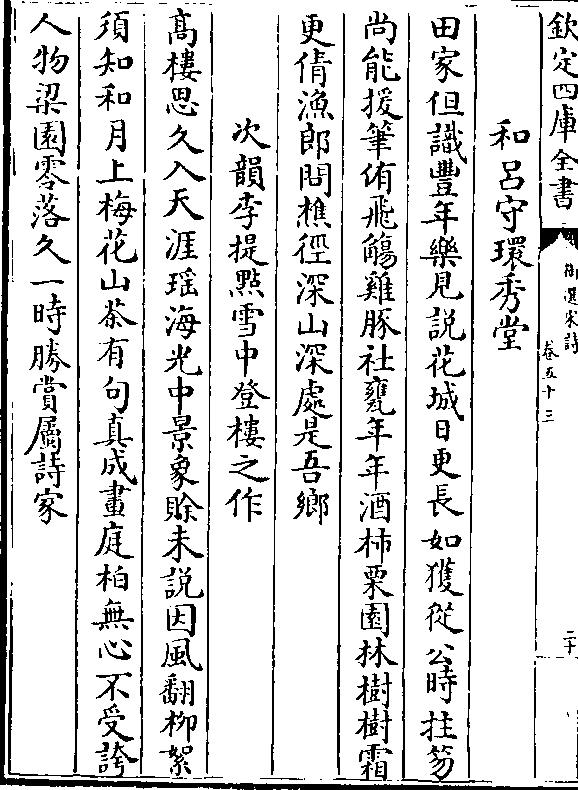 欽定四庫全書
御選宋詩
卷五十三
二十
和呂守環秀堂
田家但識豐年樂見説花城日更長如獲從公時拄笏
尚能援筆侑飛觴雞豚社甕年年酒柿栗園林樹樹霜
更倩漁郎問樵徑深山深處是吾鄉
次韻李提點雪中登樓之作
髙樓思久入天涯瑶海光中景象賖未説因風翻柳絮
須知和月上梅花山茶有句真成畫庭柏無心不受誇
人物梁園零落久一時勝賞屬詩家